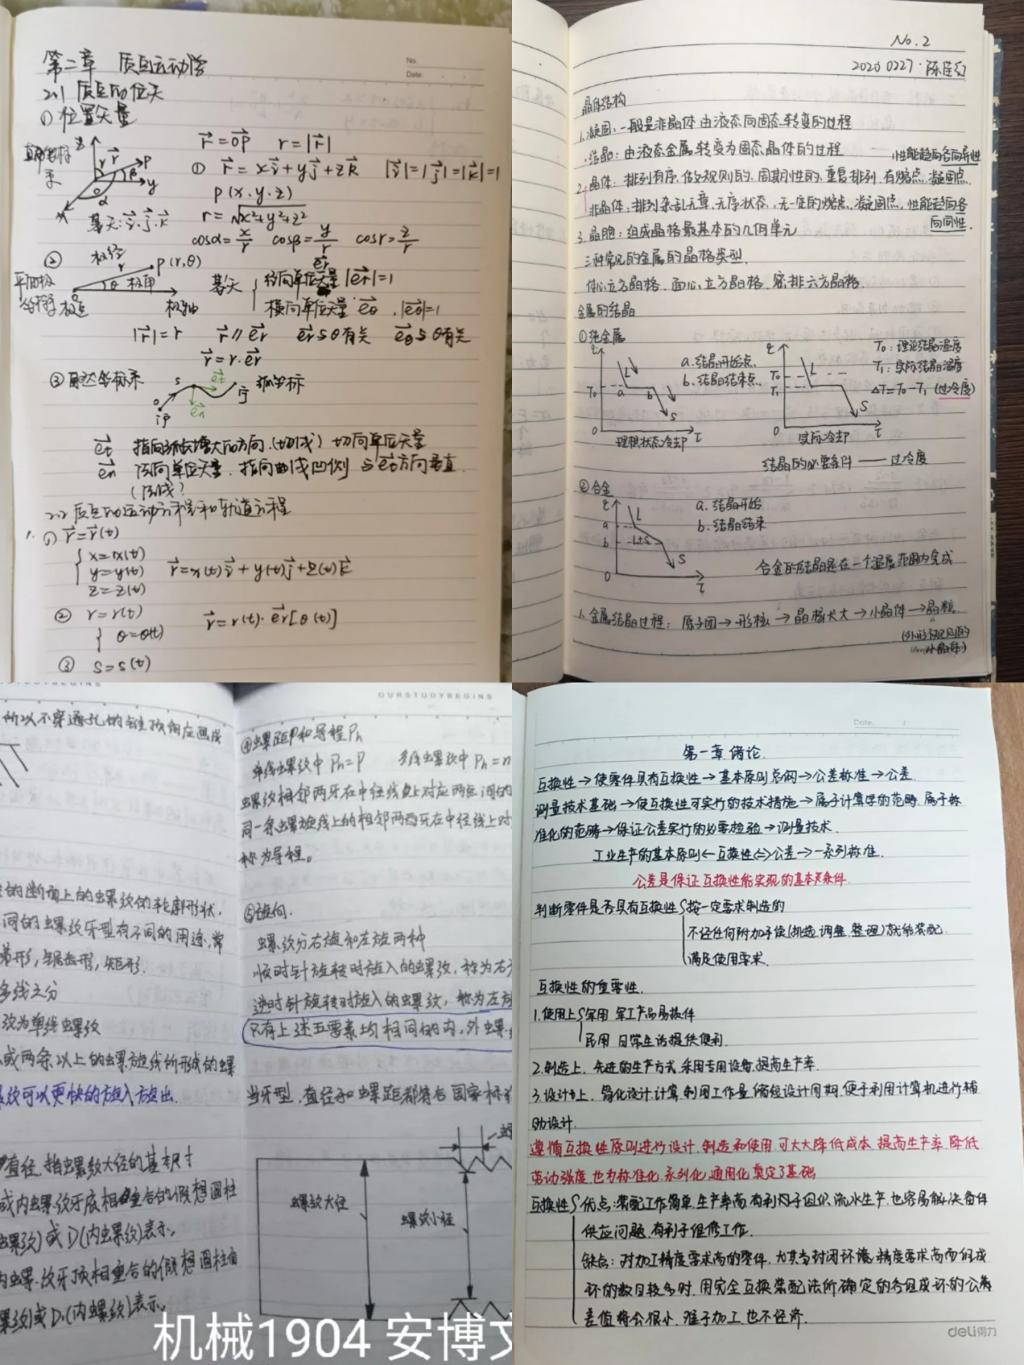 第二章 质点运动学
2.1 质点的位矢
① 位置矢量
r = OP r = |r|
① r = xi + yj + zk |i| = |j| = |k| = 1
P(x.y.z)
r = √x²+y²+z²
基矢: i.j.k
cosα = x/r cosβ = y/r cosr = z/r
② 极径 P(r,θ)
极角
极轴
基矢 径向单位矢量 |er| = 1
横向单位矢量 eθ. |eθ| = 1
|r| = r r // er er与θ有关 eθ与θ有关
r = r·er
et 指向弧长增大的方向.(切线) 切向单位矢量
en 法向单位矢量. 指向曲线凹侧 与et方向垂直.
(法线)
2.2 质点的运动方程和轨道方程
① r = r(t)
x = x(t)
y = y(t) r = x(t)i + y(t)j + z(t)k
z = z(t)
② r = r(t) r = r(t)·er[θ(t)]
θ = θ(t)
③ s = s(t)
No.
Date
No.2
20200227·
晶体结构
1.凝固:一般是非晶体由液态向固态转变的过程
结晶:由液态金属转变为固态晶体的过程
性能趋向各向异性
2.晶体:排列有序,做规则的,周期性的,重复排列.有熔点,凝固点.
非晶体:排列杂乱无章,无序状态,无一定的熔点,凝固点,性能趋向各
向同性.
3.晶胞:组成晶格最基本的几何单元
三种常见的金属的晶格类型
体心立方晶格. 面心立方晶格. 密排六方晶格.
金属的结晶
①纯金属
t
L
a.结晶开始点
b.结晶结束点
T₀
a b
S
0
理想状态冷却 τ
t
L
T₀
T₁
S
0
实际冷却 τ
T₀:理论结晶温度
T₁:实际结晶温度
ΔT=T₀-T₁(过冷度)
结晶的必要条件——过冷度
②合金
t
L
a.结晶开始
b.结晶结束
a
b L+S
S
0 τ
合金的结晶是在一个温度范围内完成
金属结晶过程: 原子团→形核→晶核长大→小晶体→晶粒.
OURSTUDYBEGINS
所以不穿通孔的锥顶角应画成
的断面上的螺纹的轮廓形状.
同的螺纹牙型有不同的用途,常
形,锯齿形,矩形.
多线之分
纹为单线螺纹
或两条以上的螺旋线所形成的螺
纹可以更快的旋入旋出.
直径,指螺纹大径的基本尺寸
或内螺纹牙底相重合的假想圆柱
螺纹)或D(内螺纹)表示.
内螺纹牙顶相重合的假想圆柱
螺纹)或D₁(内螺纹)表示.
④螺距P和导程Ph
单线螺纹中 Ph=P 多线螺纹中 Ph=n
螺纹相邻两牙在中径线上对应两点间的
同一条螺旋线上的相邻两牙在中径线上对
称为导程。
⑤旋向.
螺纹分右旋和左旋两种
顺时针旋转时旋入的螺纹,称为右
逆时针旋转时旋入的螺纹,称为左旋
只有上述五要素均相同的内,外螺
当牙型,直径和螺距都符合国家标准
螺纹大径
螺纹小径
机械1904 安博文
Date. /
第一章 绪论.
互换性→使零件具有互换性→基本原则→公差标准→公差.
测量技术基础→使互换性可实行的技术措施→属于计算学的范畴.属于标
准化的范畴→保证公差实行的必要检验→测量技术.
工业生产的基本原则←互换性⇔公差→一系列标准.
公差是保证互换性能实现的基本条件.
判断零件是否具有互换性 按一定要求制造的
不经任何附加手续(挑选,调整,整理)就能装配.
满足使用要求.
互换性的重要性.
1.使用上 军用 军工产品易换件
民用 日常生活提供便利.
2.制造上. 先进的生产方式.采用专用设备.提高生产率.
3.设计上. 简化设计.计算.制图工作量.缩短设计周期.便于利用计算机进行辅
助设计.
遵循互换性原则进行设计.制造和使用.可大大降低成本.提高生产率.降低
劳动强度.也为标准化.系列化.通用化奠定了基础.
互换性 优点:装配工作简单.生产率高.有利于组织流水生产.也容易解决备件
供应问题.有利于维修工作.
缺点:对加工精度要求高的零件.尤其当封闭环精度要求高而组成
环的数目较多时.用完全互换装配法所确定的各组成环的公差
差值将会很小.难于加工.也不经济.
deli得力